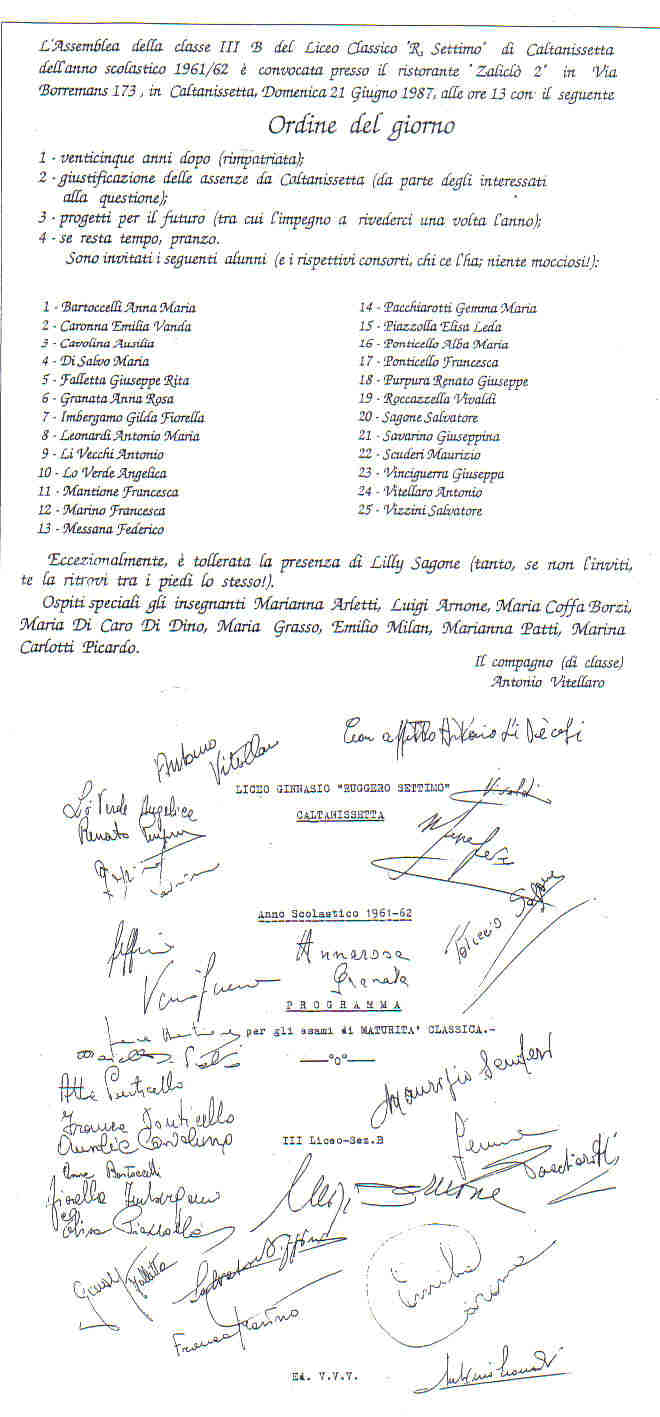 L'Assemblea della classe III B del Liceo Classico "R. Settimo" di Caltanissetta
dell'anno scolastico 1961/62 è convocata presso il ristorante "Zaliclò 2" in Via
Borremans 173, in Caltanissetta, Domenica 21 Giugno 1987, alle ore 13 con il seguente
Ordine del giorno
1 - venticinque anni dopo (rimpatriata);
2 - giustificazione delle assenze da Caltanissetta (da parte degli interessati
alla questione);
3 - progetti per il futuro (tra cui l'impegno a rivederci una volta l'anno);
4 - se resta tempo, pranzo.
Sono invitati i seguenti alunni (e i rispettivi consorti, chi ce l'ha; niente mocciosi!):
1 - Bartoccelli Anna Maria
2 - Caronna Emilia Vanda
3 - Cavolina Ausilia
4 - Di Salvo Maria
5 - Falletta Giuseppe Rita
6 - Granata Anna Rosa
7 - Imbergamo Gilda Fiorella
8 - Leonardi Antonio Maria
9 - Li Vecchi Antonio
10 - Lo Verde Angelica
11 - Mantione Francesca
12 - Marino Francesca
13 - Messana Federico
14 - Pacchiarotti Gemma Maria
15 - Piazzolla Elisa Leda
16 - Ponticello Alba Maria
17 - Ponticello Francesca
18 - Purpura Renato Giuseppe
19 - Roccazzella Vivaldi
20 - Sagone Salvatore
21 - Savarino Giuseppina
22 - Scuderi Maurizio
23 - Vinciguerra Giuseppa
24 - Vitellaro Antonio
25 - Vizzini Salvatore
Eccezionalmente, è tollerata la presenza di Lilly Sagone (tanto, se non l'inviti,
te la ritrovi tra i piedi lo stesso!).
Ospiti speciali gli insegnanti Marianna Arletti, Luigi Arnone, Maria Coffa Borzì,
Maria Di Caro Di Dino, Maria Grasso, Emilio Milan, Marianna Patti, Marina
Carlotti Picardo.
Il compagno (di classe)
Antonio Vitellaro
Antonio
Vitellaro
Con affetto
LICEO GINNASIO "RUGGERO SETTIMO"
Vivaldi
Lo Verde Angelica
CALTANISSETTA
Renato
Anno Scolastico 1961-62
Annarosa
Granata
PROGRAMMA
per gli esami di MATURITA' CLASSICA.-
—"o"—
Alba Ponticello
Maurizio Scuderi
Franca Ponticello
III Liceo-Sez.B
Gemma
Pacchiarotti
Anna Bartoccelli
Fiorella Imbergamo
Luigi Arnone
Elisa Piazzolla
Falletta
Salvatore Vizzini
Emilia
Franca Marino
Ed. V.V.V.
Antonio Leonardi